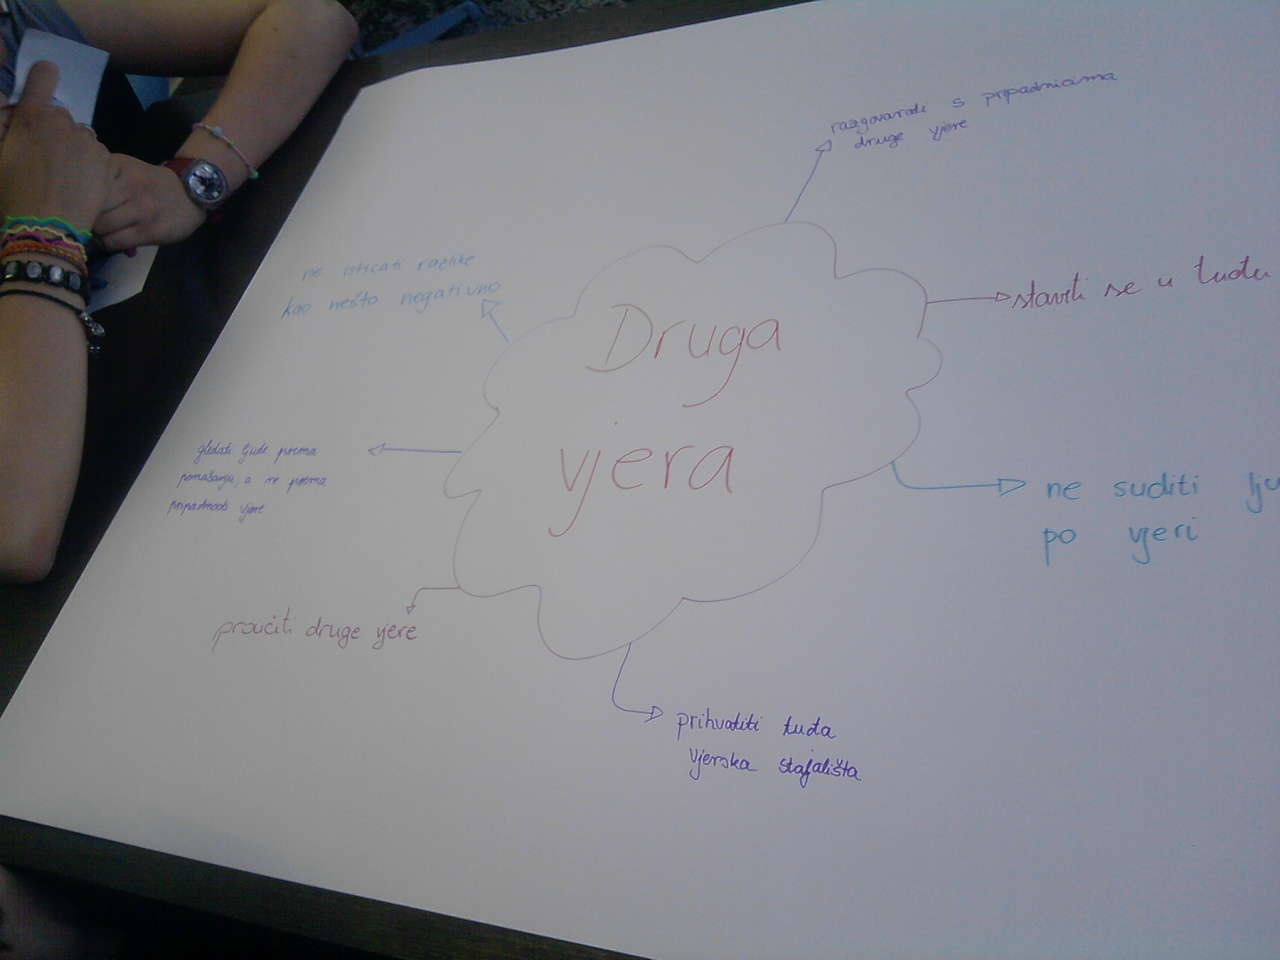 razgovarati s pripadnicima
druge vjere
ne isticati razlike
kao nešto negativno
staviti se u tuđu
Druga
vjera
gledati ljude prema
ponašanju, a ne prema
pripadnosti vjere
ne suditi
po vjeri
proučiti druge vjere
prihvatiti tuđa
vjerska stajališta